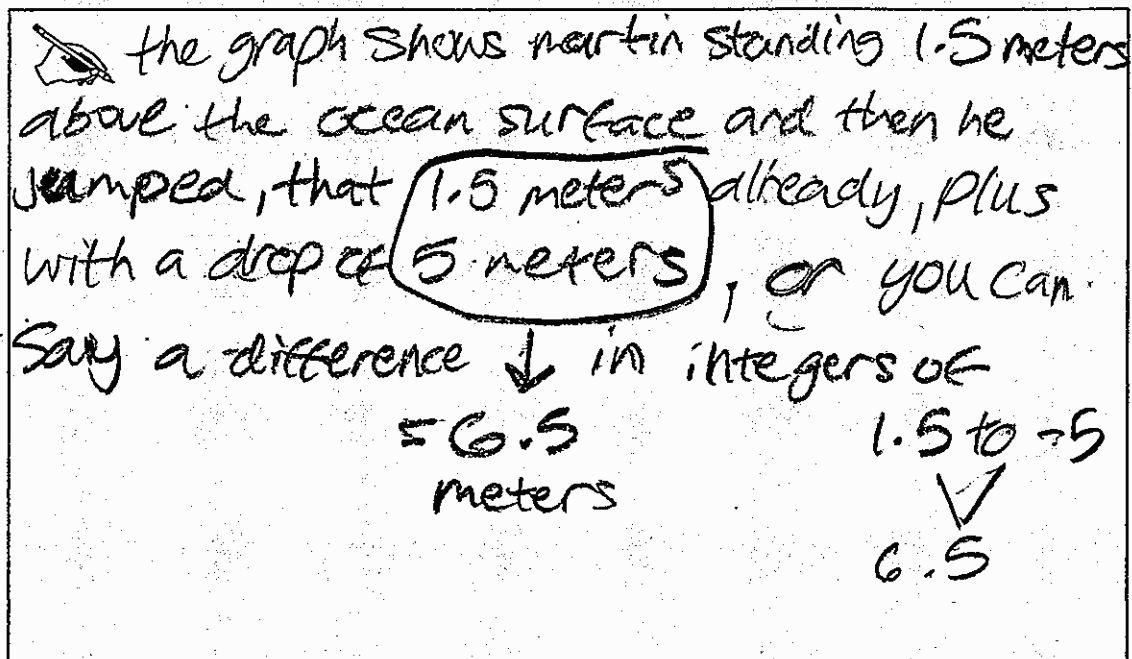 the graph shows martin standing 1.5 meters
above the ocean surface and then he
jumped, that 1.5 meters already, plus
with a drop of 5 meters, or you can
say a difference ↓ in integers of
=6.5 1.5 to -5
meters
6.5